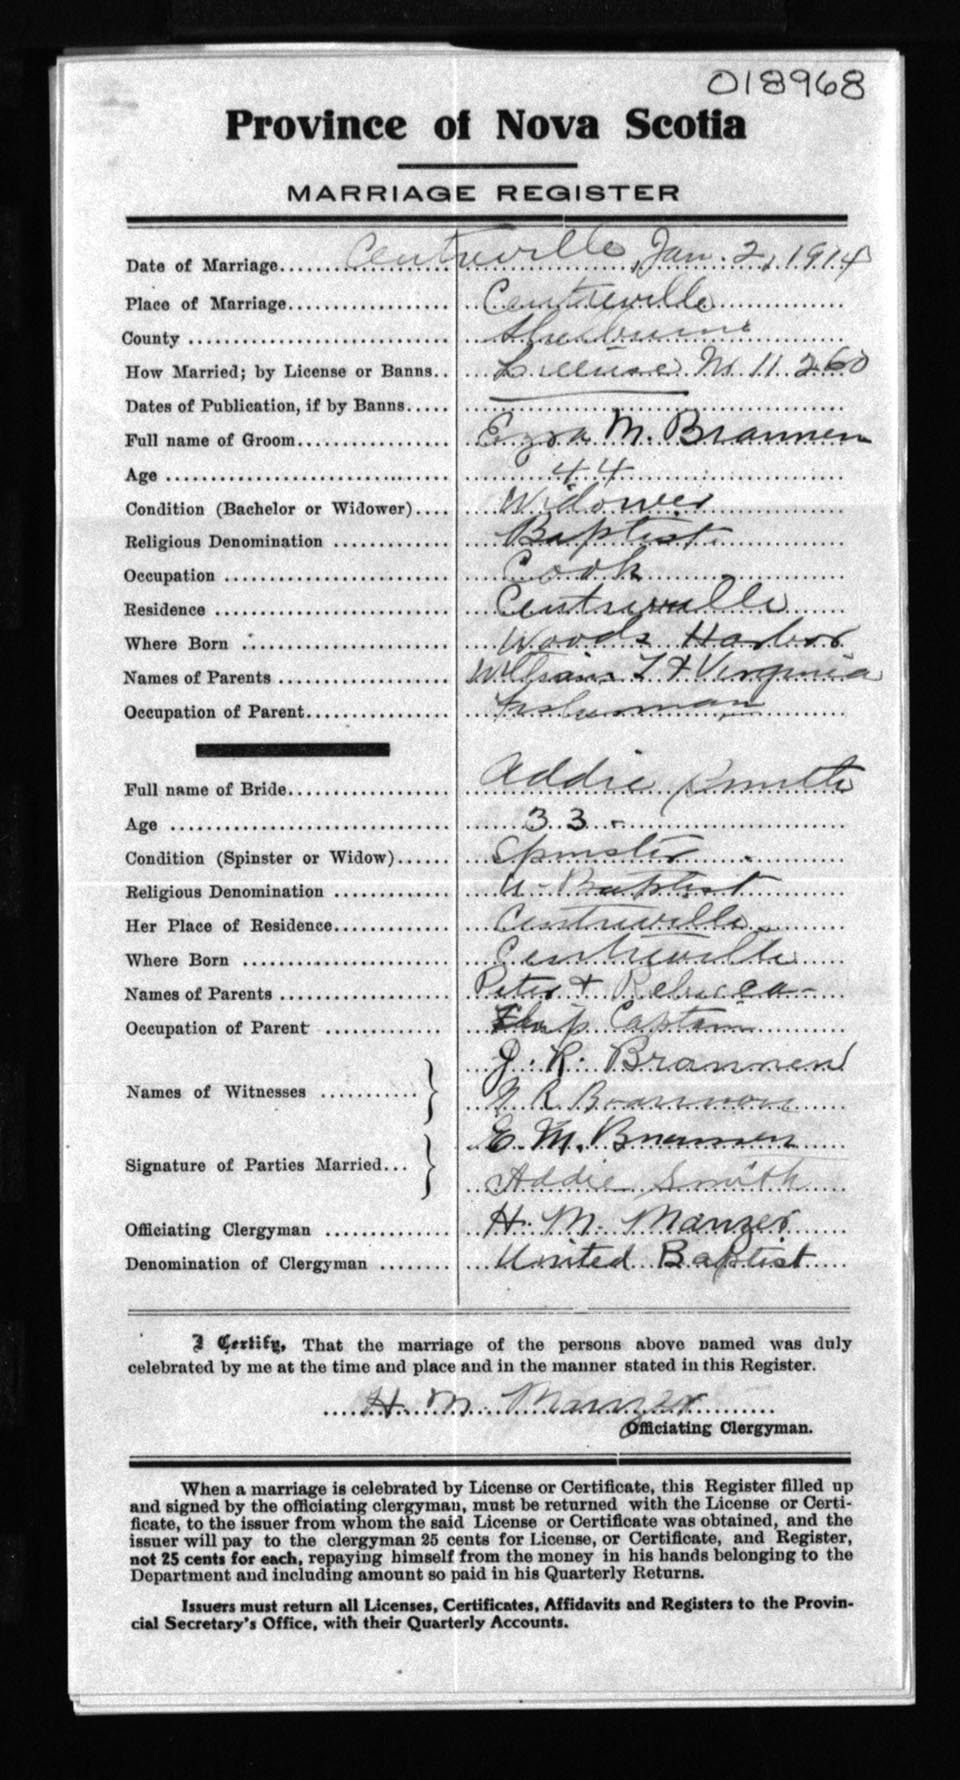 018968
Province of Nova Scotia
MARRIAGE REGISTER
Date of Marriage........ Centreville, Jan. 2, 1914
Place of Marriage........ Centreville
County ........ Shelburne
How Married; by License or Banns.. License M 11260
Dates of Publication, if by Banns.....
Full name of Groom........ Ezra M. Brannen
Age ........ 44
Condition (Bachelor or Widower).... Widower
Religious Denomination ........ Baptist
Occupation ........ Cook
Residence ........ Centreville
Where Born ........ Woods Harbor
Names of Parents ........ William L + Virginia
Occupation of Parent........ Fisherman
Full name of Bride........ Addie Smith
Age ........ 33 -
Condition (Spinster or Widow)...... Spinster
Religious Denomination ........ U. Baptist
Her Place of Residence........ Centreville
Where Born ........ Centreville
Names of Parents ........ Peter + Rebecca
Occupation of Parent ........ Ship Captain
J. R. Brannen
Names of Witnesses ........ R Brannon
E. M. Brannen
Signature of Parties Married... Addie Smith
Officiating Clergyman ........ H. M. Manzer
Denomination of Clergyman ........ United Baptist
I Certify, That the marriage of the persons above named was duly
celebrated by me at the time and place and in the manner stated in this Register.
H. M. Manzer
Officiating Clergyman.
When a marriage is celebrated by License or Certificate, this Register filled up
and signed by the officiating clergyman, must be returned with the License or Certi-
ficate, to the issuer from whom the said License or Certificate was obtained, and the
issuer will pay to the clergyman 25 cents for License, or Certificate, and Register,
not 25 cents for each, repaying himself from the money in his hands belonging to the
Department and including amount so paid in his Quarterly Returns.
Issuers must return all Licenses, Certificates, Affidavits and Registers to the Provin-
cial Secretary's Office, with their Quarterly Accounts.